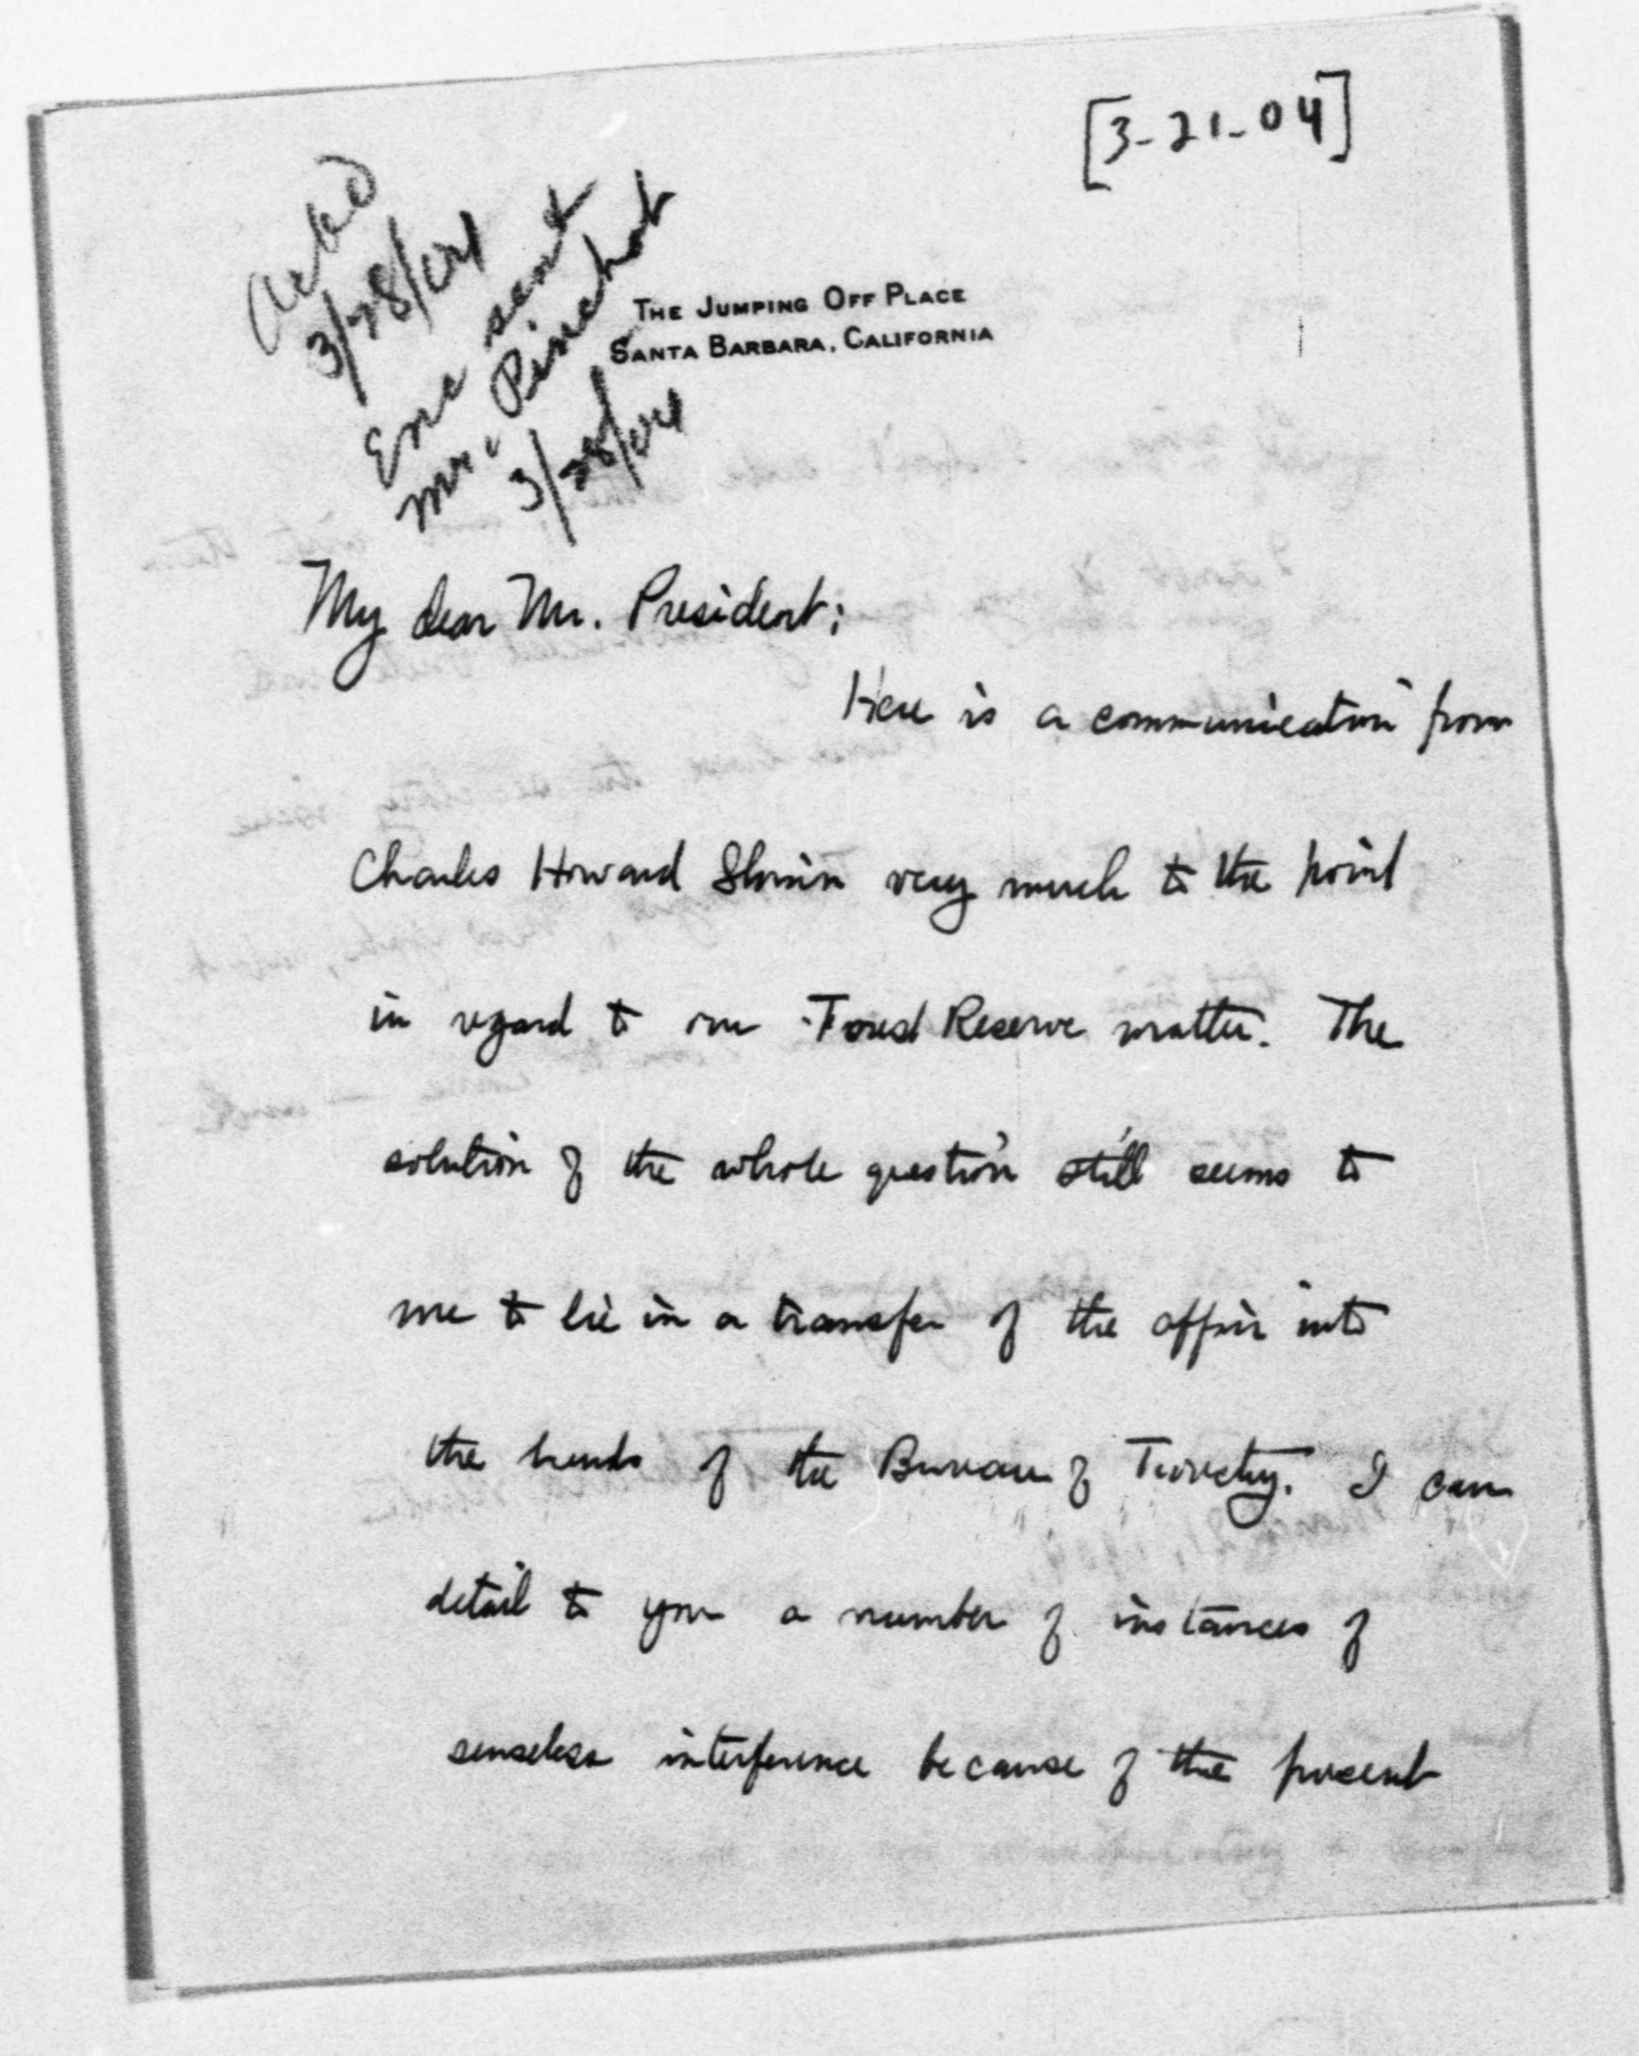 [3-21-04]
Ackd
3/28/04
Enc sent
Mr. Pinchot
3/28/04
THE JUMPING OFF PLACE
SANTA BARBARA, CALIFORNIA
My dear Mr. President;
Here is a communication from
Charles Howard Shinn very much to the point
in regard to our Forest Reserve matter. The
solution of the whole question still seems to
me to lie in a transfer of the affair into
the hands of the Bureau of Forestry. I can
detail to you a number of instances of
senseless interference because of the present